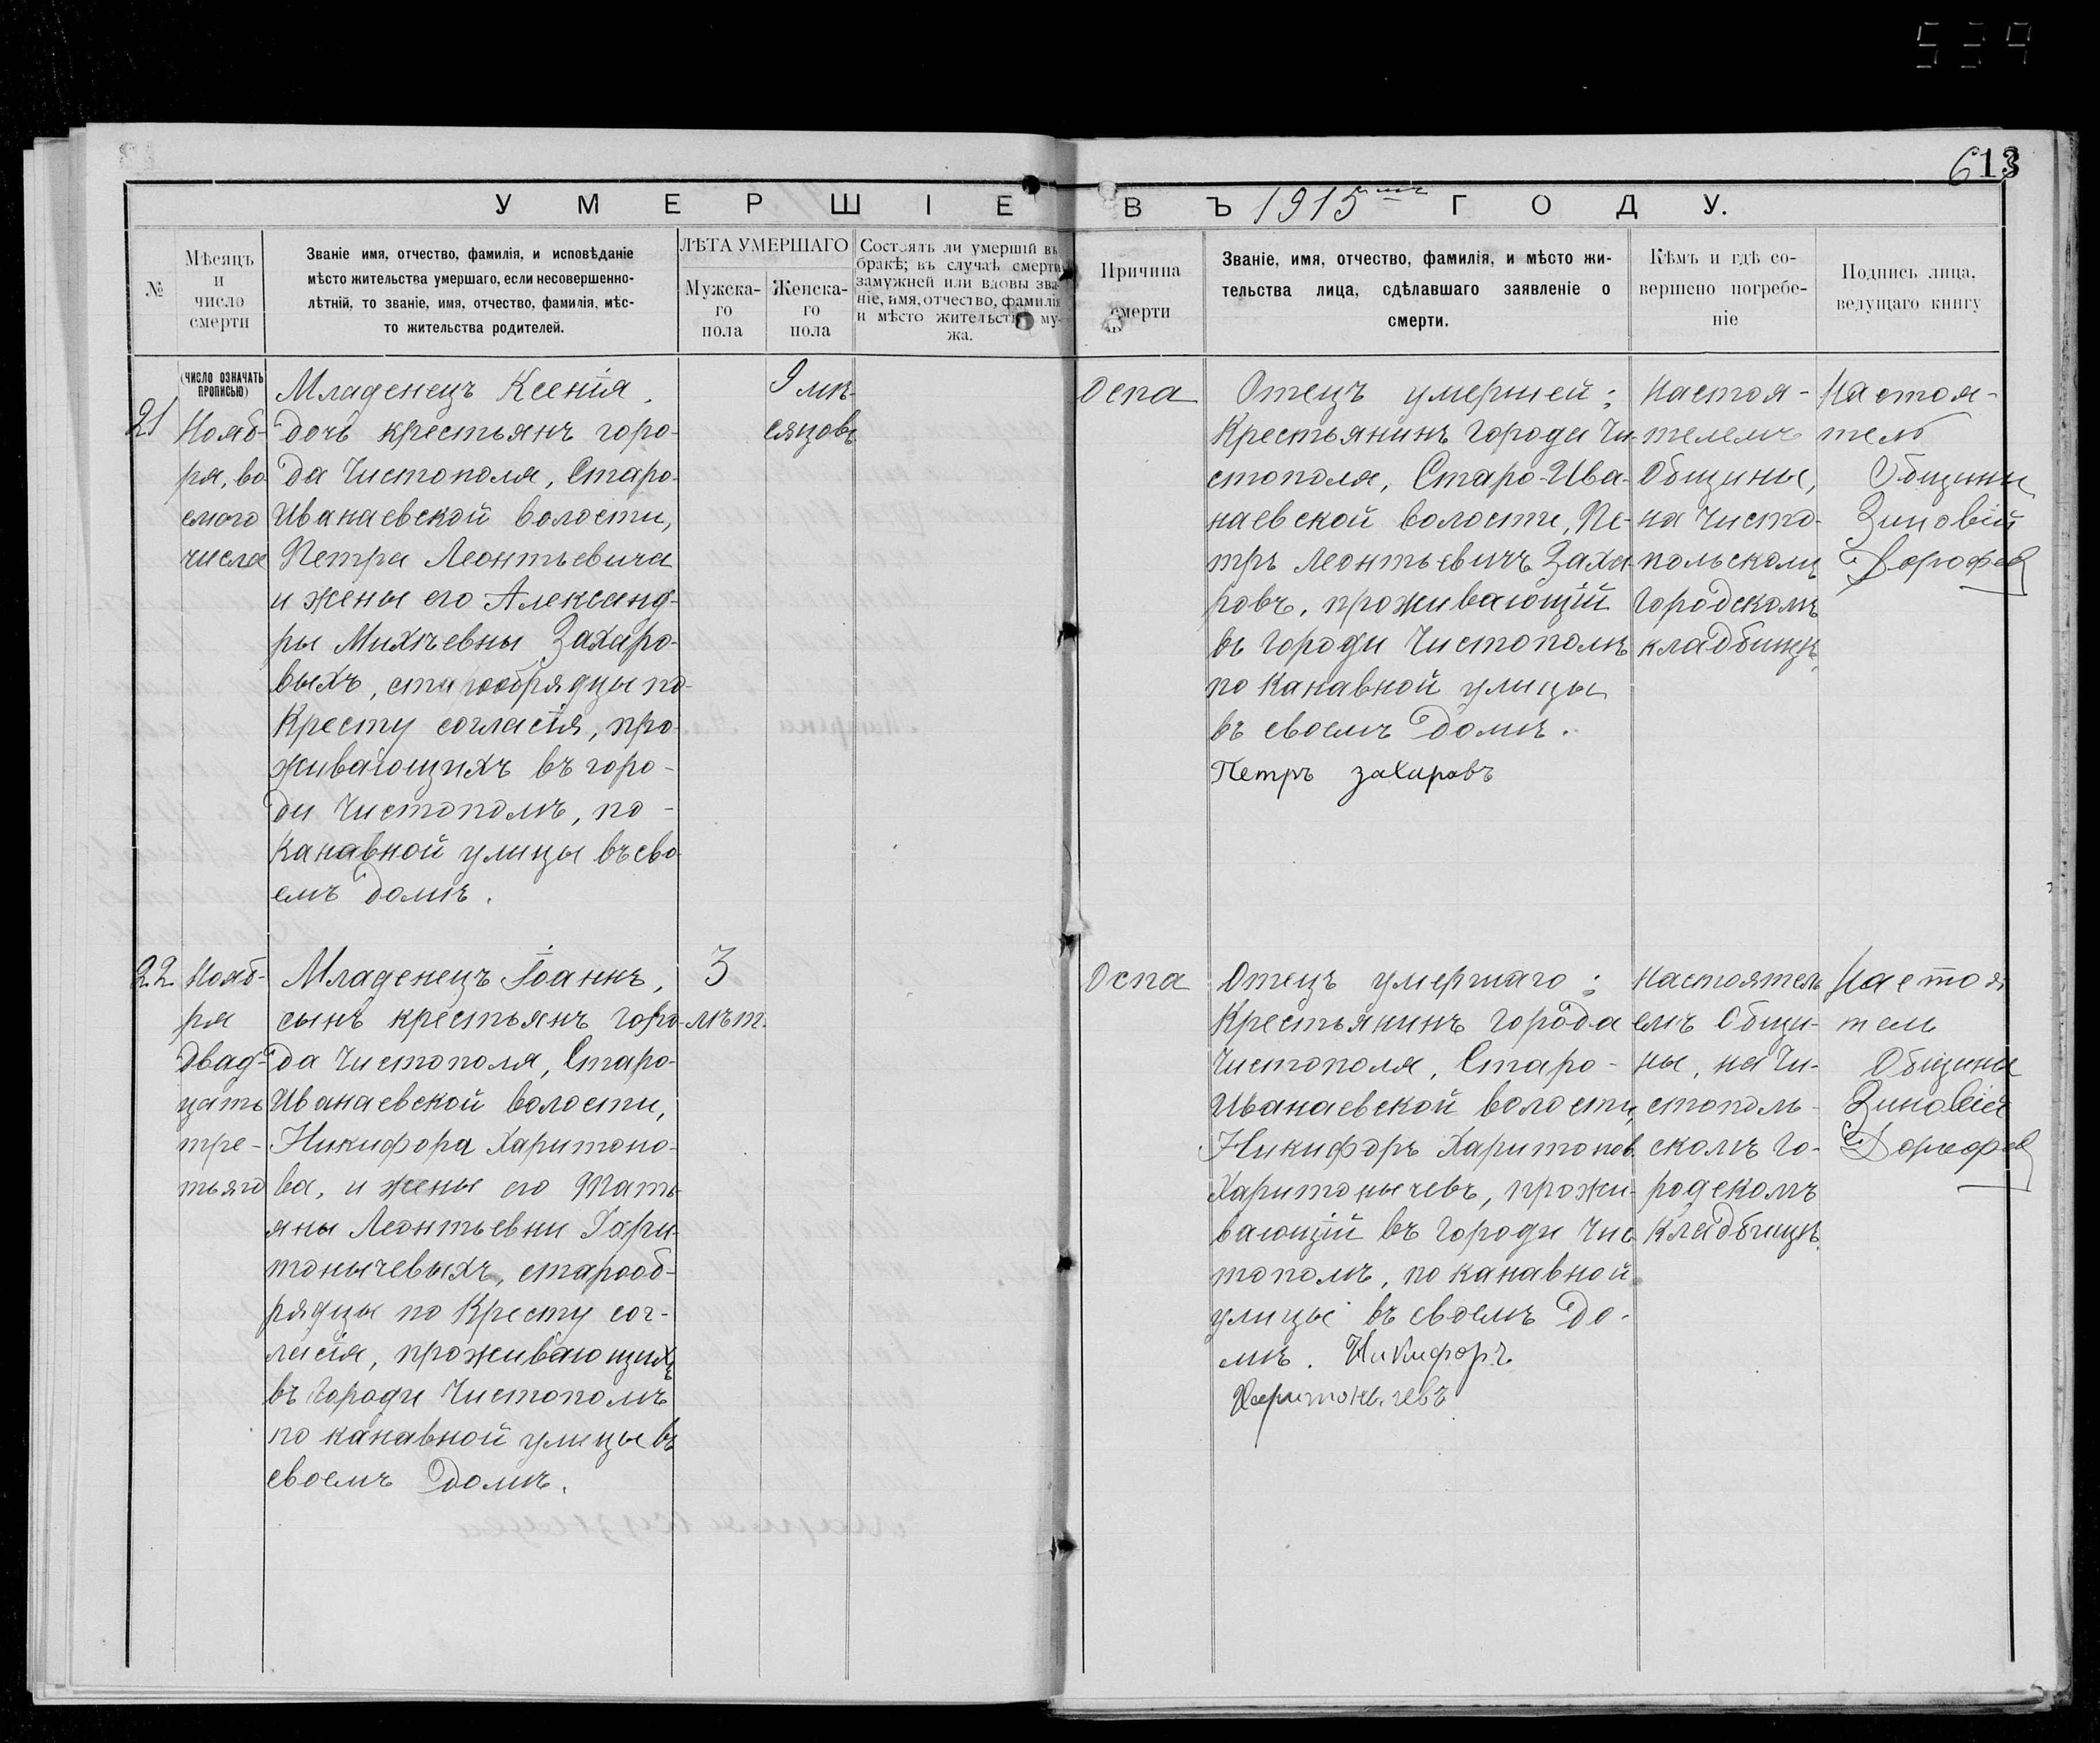 539
613
УМЕРШІЕ ВЪ 1915 ГОДУ.
№
Мѣсяцъ
и
число
смерти
Званіе имя, отчество, фамилія, и исповѣданіе
мѣсто жительства умершаго, если несовершенно-
лѣтній, то званіе, имя, отчество, фамилія, мѣс-
то жительства родителей.
ЛѢТА УМЕРШАГО
Мужска-
го
пола
Женска-
го
пола
Состоялъ ли умершій въ
бракѣ; въ случаѣ смерти
замужней или вдовы зва-
ніе, имя, отчество, фамилія
и мѣсто жительства му-
жа.
Причина
смерти
Званіе, имя, отчество, фамилія, и мѣсто жи-
тельства лица, сдѣлавшаго заявленіе о
смерти.
Кѣмъ и гдѣ со-
вершено погребе-
ніе
Подпись лица,
ведущаго книгу
(ЧИСЛО ОЗНАЧАТЬ
ПРОПИСЬЮ)
21
Нояб-
ря, во
смого
числа
Младенецъ Ксенія,
дочь крестьянъ горо-
да Чистополя, Старо-
Иванаевской волости,
Петра Леонтьевича
и жены его Александ-
ры Михѣевны Захаро-
выхъ, старообрядцы по-
Кресту согласія, про-
живающихъ въ горо-
ди Чистополѣ, по-
Канавной улицы въ сво-
емъ домѣ.
9 мѣ-
сяцовъ
Оспа
Отецъ умершей:
Крестьянинъ города Чи-
стополя, Старо-Ива-
наевской волости, Пе-
тръ Леонтьевичъ Заха-
ровъ, проживающій
въ городи Чистополѣ
по Канавной улицы
въ своемъ домѣ.
Петръ захаровъ
Настоя-
телемъ
Общины,
на Чисто-
польскомъ
Городскомъ
кладбищѣ.
Настоя-
тель
Общины
Зиновій
Дорофеев
22
Нояб-
ря
Двад-
цать
тре-
тьяго
Младенецъ Іоаннъ,
сынъ крестьянъ горо-
да Чистополя, Старо-
Иванаевской волости,
Никифора Харитоно-
ва, и жены его Тать-
яны Леонтьевны Хари-
тонычевыхъ, старооб-
рядцы по Кресту сог-
ласія, проживающихъ
въ Городи Чистополѣ
по канавной улицы въ
своемъ домѣ.
3
лѣт.
Оспа
Отецъ умершаго:
Крестьянинъ города
Чистополя, Старо-
Иванаевской волости,
Никифоръ Харитонов.
Харитонычевъ, прожи-
вающій въ Городи Чис-
тополѣ, по канавной
улицы въ своемъ до-
мѣ. Никифоръ
Харитонычевъ
Настоятел-
емъ Общи-
ны, на Чи-
стополь-
скомъ Го-
родскомъ
Кладбищѣ.
Настоя
тель
Общины
Зиновій
Дорофеев